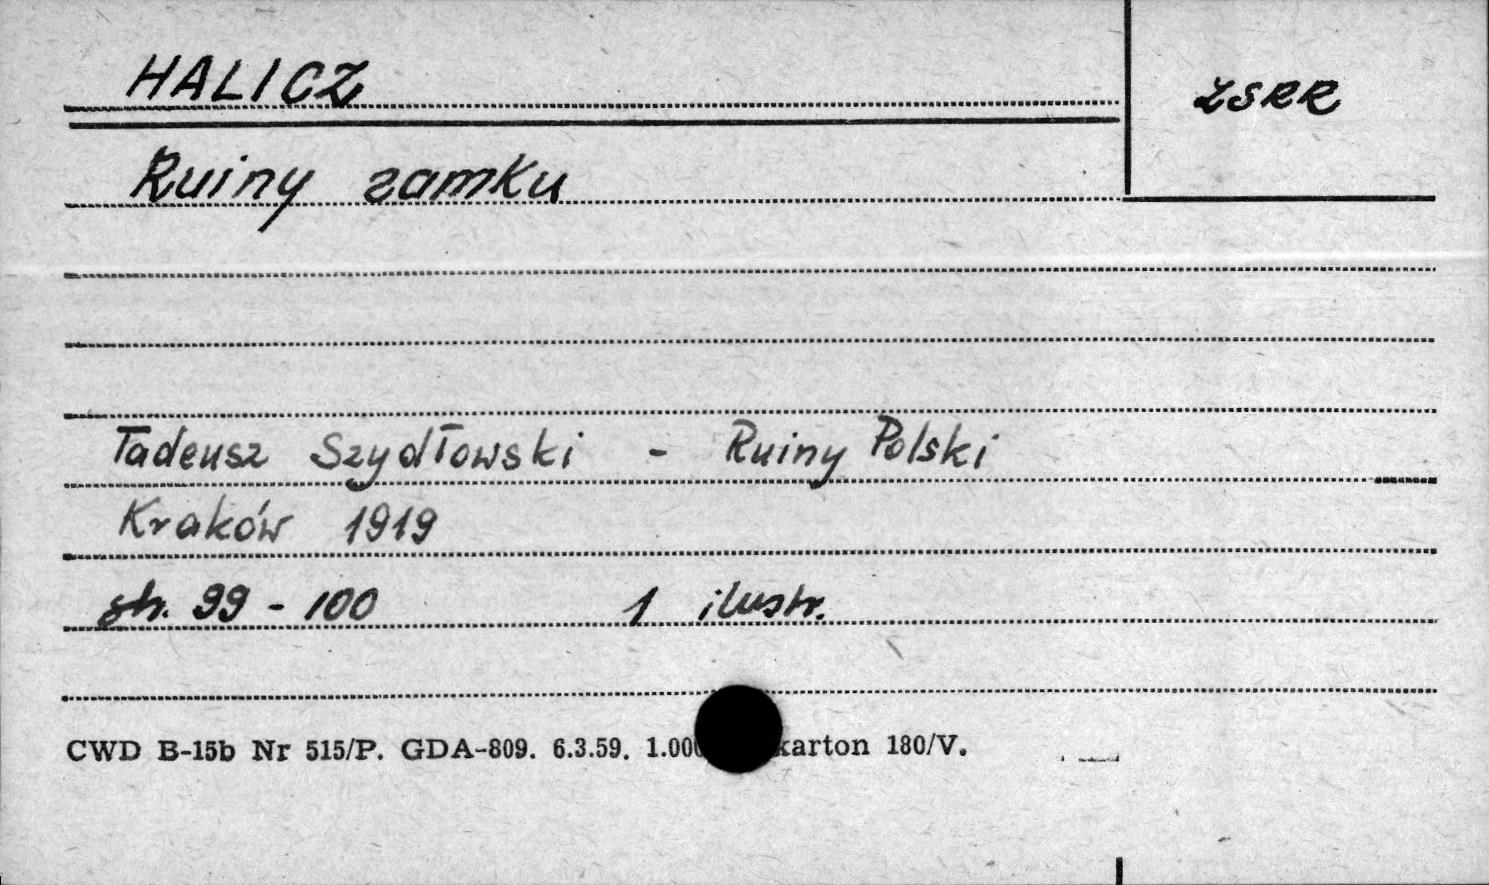 HALICZ
ZSRR
Ruiny zamku
Tadeusz Szydłowski - Ruiny Polski
Kraków 1919
str. 99 - 100 1 ilustr.
CWD B-15b Nr 515/P. GDA-809. 6.3.59. karton 180/V.